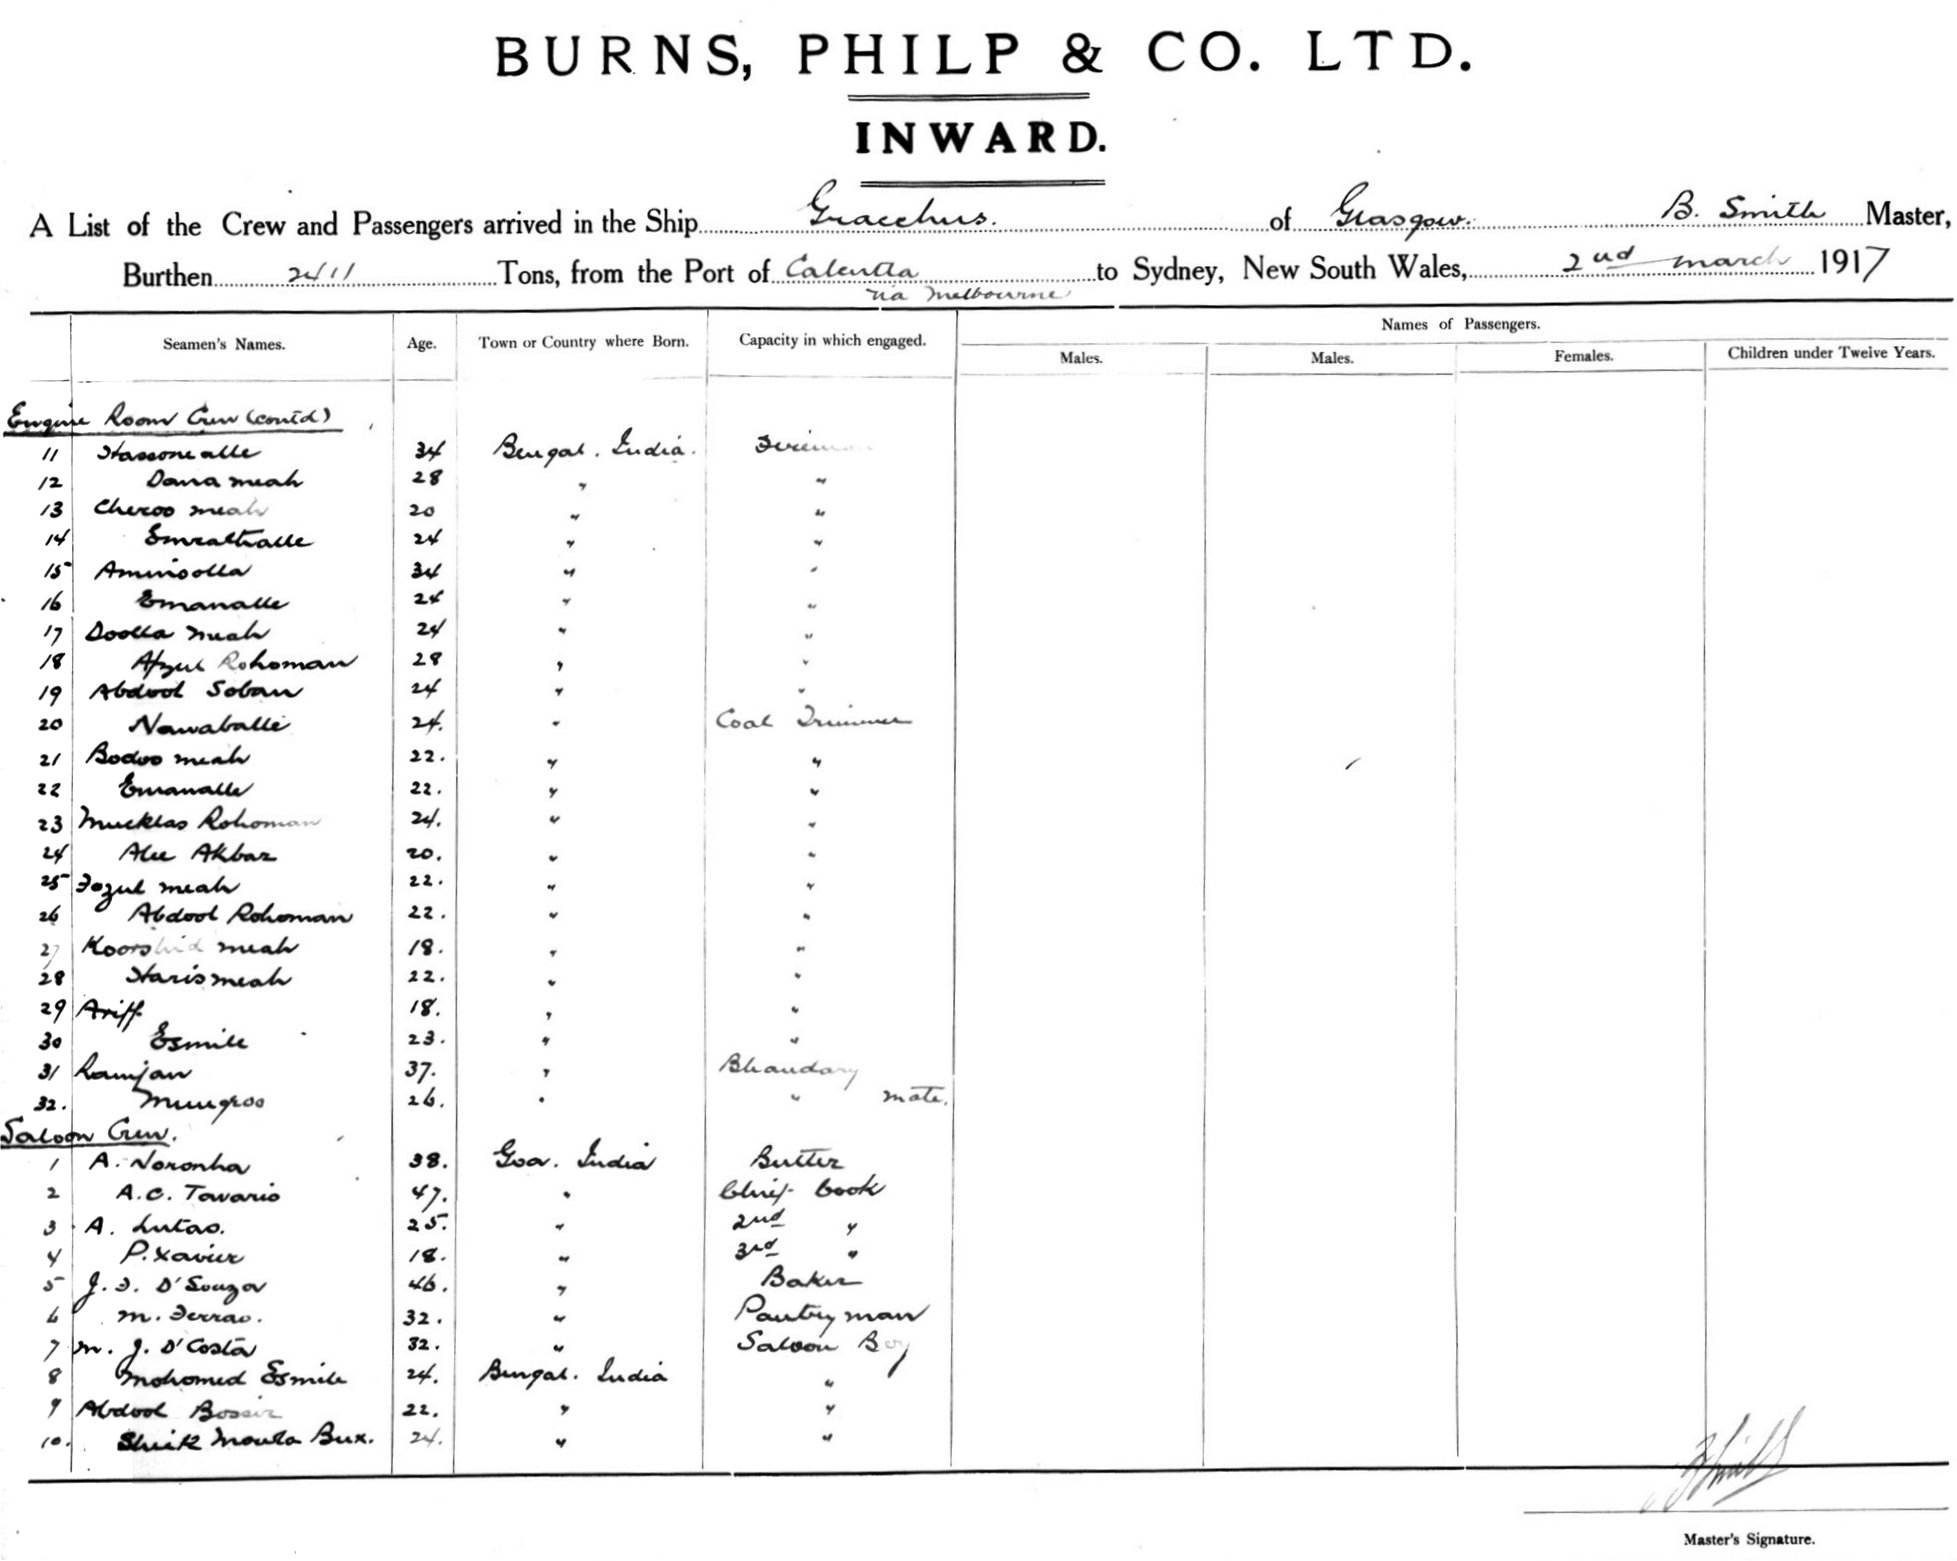 BURNS, PHILP & CO. LTD.
INWARD.
A List of the Crew and Passengers arrived in the Ship Gracchus. of Glasgow. B. Smith Master,
Burthen 2411 Tons, from the Port of Calcutta to Sydney, New South Wales, 2nd March 1917
via Melbourne
Names of Passengers.
Seamen's Names. Age. Town or Country where Born. Capacity in which engaged. Males. Males. Females. Children under Twelve Years.
Engine Room Crew (contd)
11 Hassonealle 34 Bengal. India. Fireman
12 Dana meah 28 " "
13 Cheroo meah 20 " "
14 Emrathalle 24 " "
15 Aminoolla 34 " "
16 Emanalle 24 " "
17 Doolla meah 24 " "
18 Afzul Rohoman 28 " "
19 Abdool Soban 24 " "
20 Nawaballie 24. " Coal Trimmer
21 Bodoo meah 22. " "
22 Emanalle 22. " "
23 Mucklas Rohoman 24. " "
24 Alee Akbar 20. " "
25 Fozul meah 22. " "
26 Abdool Rohoman 22. " "
27 Koorshid meah 18. " "
28 Harismeah 22. " "
29 Ariff 18. " "
30 Esmile 23. " "
31 Ramjan 37. " Bhandary
32. Mungroo 26. " " mate.
Saloon Crew.
1 A. Noronha 38. Goa. India Butler
2 A.C. Tavario 47. " Chief Cook
3 A. Lutao. 25. " 2nd "
4 P. Xavier 18. " 3rd "
5 J. F. D'Souza 46. " Baker
6 M. Ferrao. 32. " Pantryman
7 M. J. D'Costa 32. " Saloon Boy
8 Mohomed Esmile 24. Bengal. India "
9 Abdool Bossir 22. " "
10. Sheik Moula Bux. 24. " "
B Smith
Master's Signature.